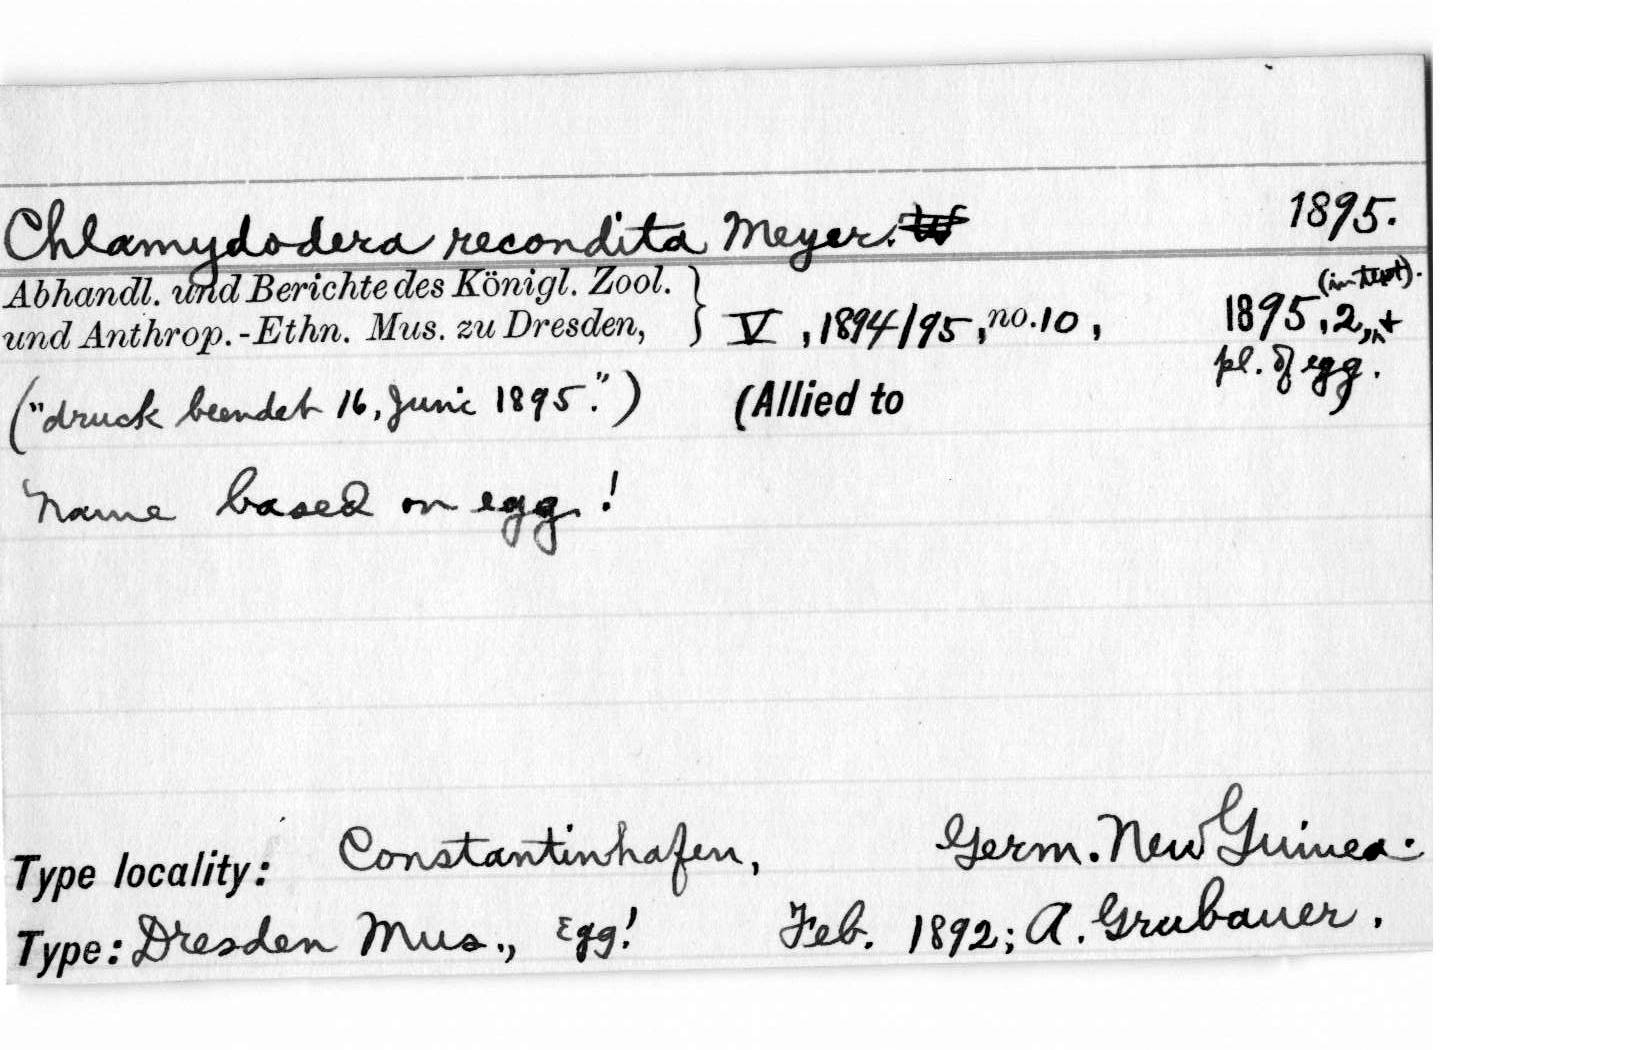 Chlamydodera recondita Meyer. 1895.
Abhandl. und Berichte des Königl. Zool.
und Anthrop.-Ethn. Mus. zu Dresden, } V, 1894/95, no.10, 1895, 2, + (in text).
pl. of egg.
("druck beendet 16, Juni 1895.") (Allied to
Name based on egg!
Type locality: Constantinhafen, Germ. New Guinea.
Type: Dresden Mus., Egg! Feb. 1892; A. Grubauer.